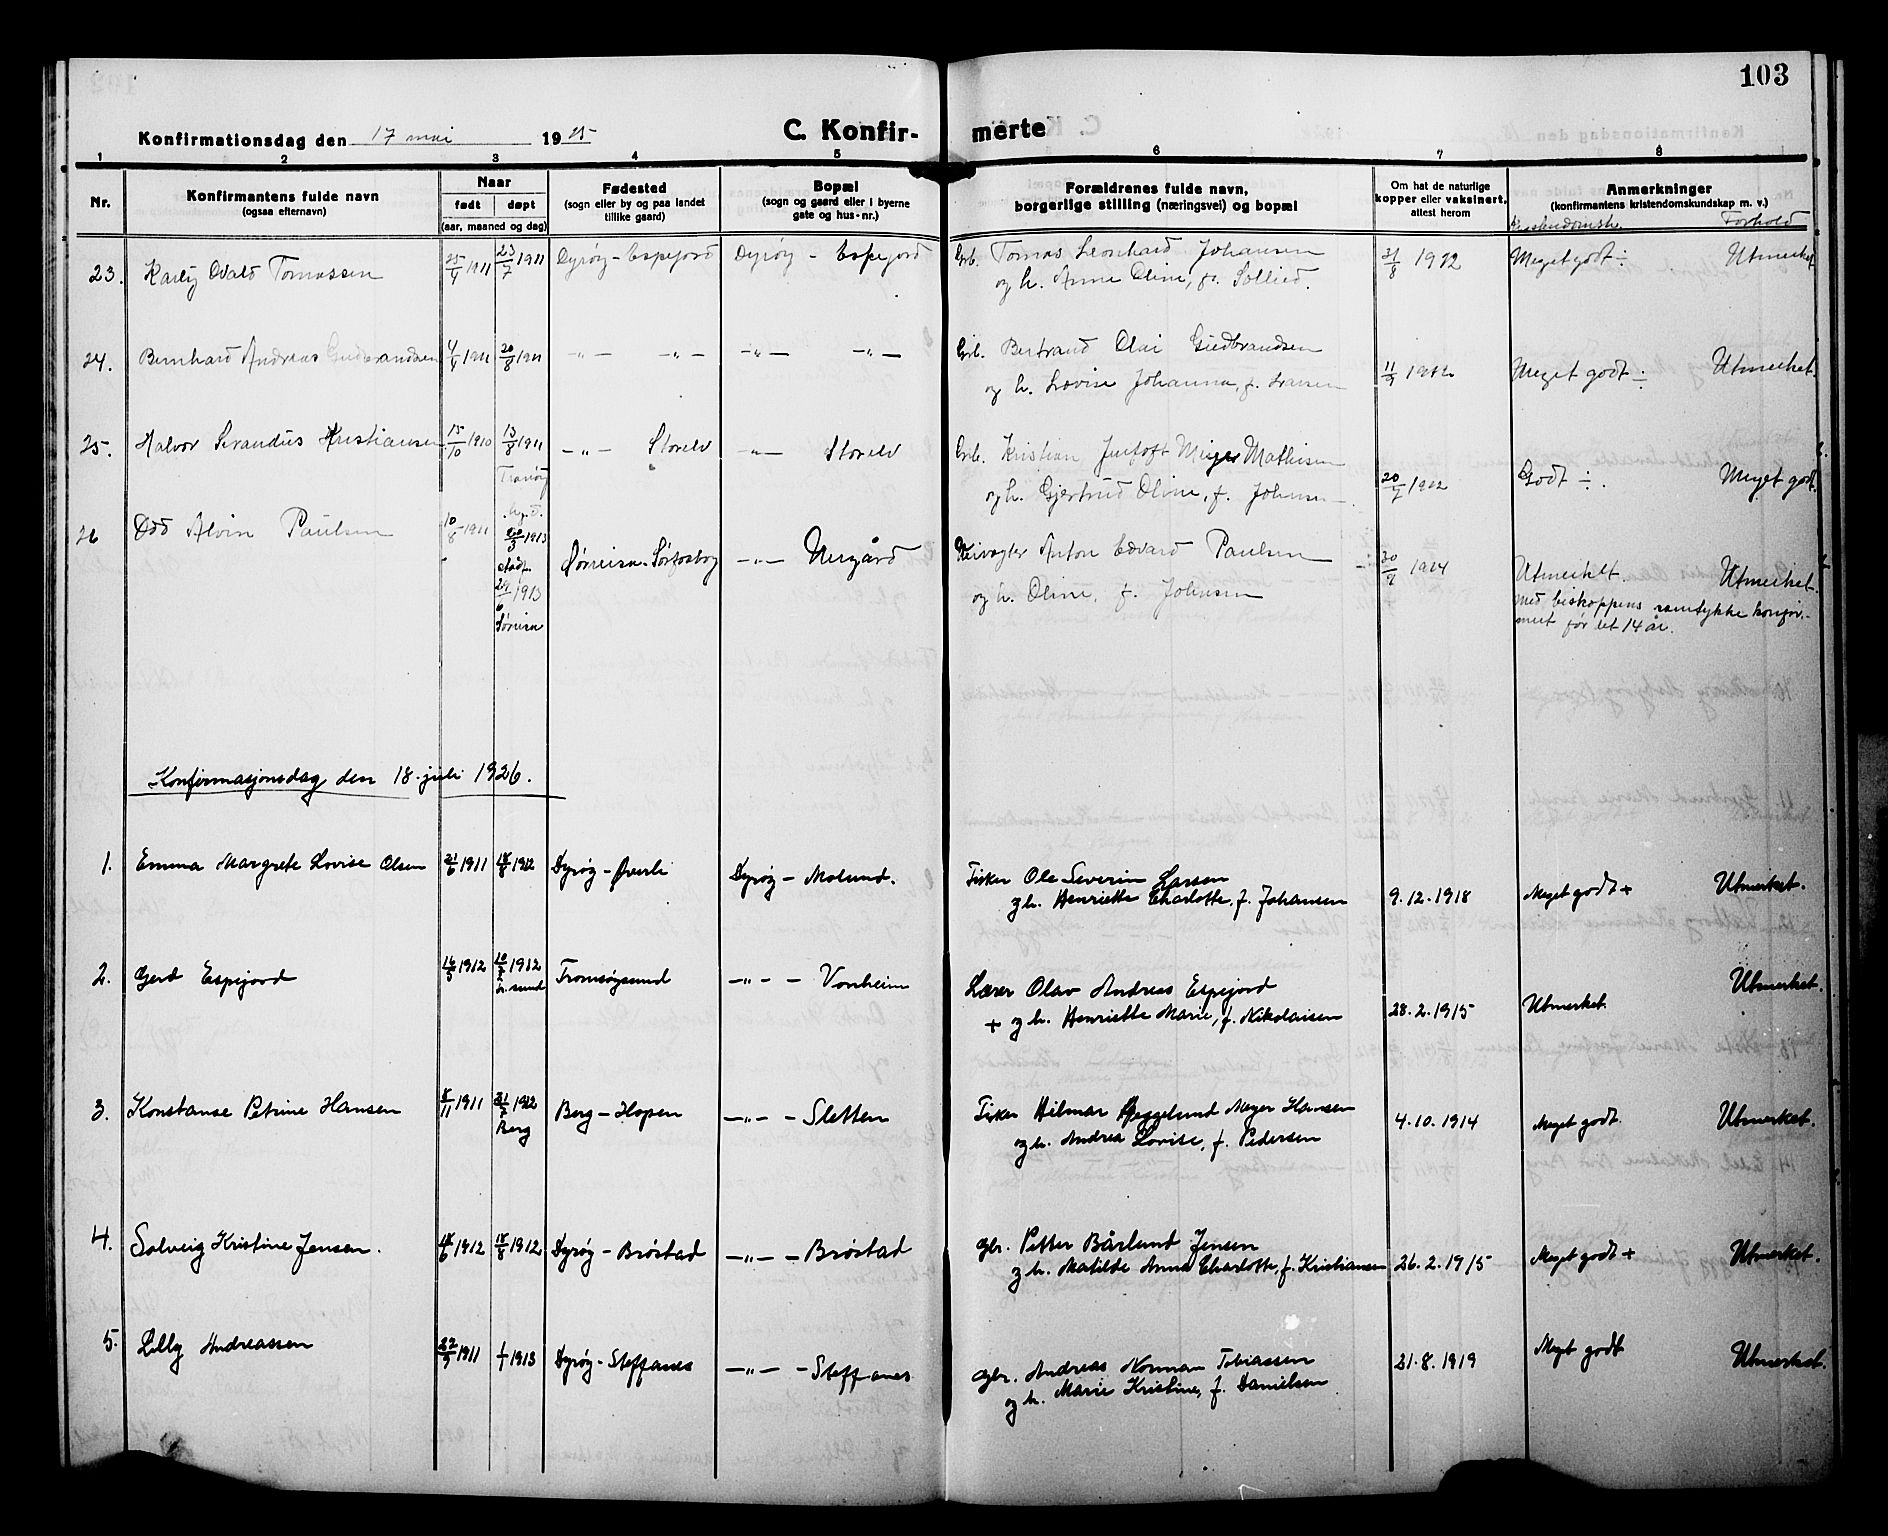 103
Konfirmationsdag den 17 mai 1925
C. Konfir-
merte
1 2 3 4 5 6 7 8
Nr.
Konfirmantens fulde navn
(ogsaa efternavn)
Naar
født døpt
(aar, maaned og dag)
Fødested
(sogn eller by og paa landet
tillike gaard)
Bopæl
(sogn og gaard eller i byerne
gate og hus-nr.)
Forældrenes fulde navn,
borgerlige stilling (næringsvei) og bopæl
Om hat de naturlige
kopper eller vaksinert,
attest herom
Anmerkninger
(konfirmantens kristendomskundskap m. v.)
Forhold
23. Tomassen 25/4 1911 23/7 1911 Dyrøy - Espejord Dyrøy - Espejord Grb. Tomas Leonhard Johansen 21/8 1912 Meget godt ÷ Utmerket
og h. Anne Oline, f. Sollied.
24. Bernhard Andreas Gudbrandsen 20/8 1911 -"- -"- -"- -"- Grb. Bertrand Olai Gudbrandsen 11/9 1912 Meget godt ÷ Utmerket.
og h. Lovise Johanna, f. Larsen
25. Halvor Strandus Kristiansen 15/10 1910 13/8 1911 -"- Storelv -"- Storelv Grb. Kristian Meyer Mathisen 20/7 1912 Godt ÷. Meget godt.
Tranøy
og h. Gjertrud Oline, f. Johnsen
26 Odd Alvin Paulsen 10/8 1911 Sørreisa - -"- Nergård Anton Edvard Paulsen 1914 Utmerket. Utmerket.
og h. Oline, f. Johnsen
1913
Sørreisa
med biskoppens samtykke konfir-
mert før det 14 år.
Konfirmasjonsdag den 18. juli 1926.
1. Emma Margrete Lovise Olsen 21/6 1911 18/8 1912 Dyrøy - Øverli Dyrøy - Molund. Fisker Ole Severin Larsen
og h. Henriette Charlotte, f. Johansen 9.12.1918 Meget godt + Utmerket.
2. Gerd Espejord 16/5 1912 1912 Tromsøysund -"- - Vonheim Lærer Olav Andreas Espejord
+ og h. Henriette Marie, f. Nikolaisen 28.2.1915 Utmerket Utmerket.
3. Konstanse Petrine Hansen 8/11 1911 1912 Berg - Hopen -"- - Sletten Fisker Hilmar Heggelund Meyer Hansen
Berg
og h. Andrea Lovise, f. Pedersen 4.10.1914 Meget godt. Utmerket.
4. Solveig Kristine Jensen. 1912 18/8 1912 Dyrøy - Brøstad -"- - Brøstad gbr. Petter Bårlund Jensen
og h. Matilde Anna Charlotte, f. Kristiansen 26.2.1915 Meget godt + Utmerket.
5. Lilly Andreassen 22/9 1911 1/1 1913 Dyrøy - Steffanes -"- - Steffanes gbr. Andreas Norman Tobiassen 21.8.1919 Meget godt Utmerket.
og h. Marie Kristine, f. Danielsen